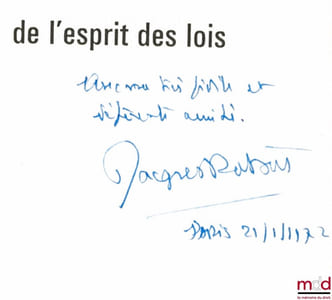 de l'esprit des lois
Avec ma très fidèle et
déférente amitié.
Jacques Robert
Paris 21/1/1972
mdd
la mémoire du droit